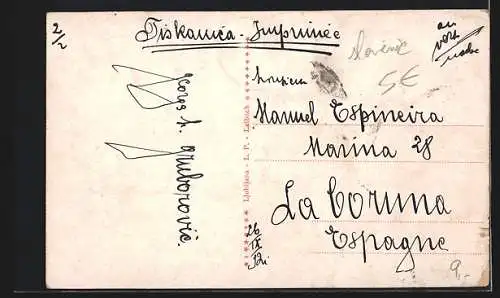 2/2
Tiskanica-Imprimée
au
verso
Slovénie
5€
Monsieur
Manuel Espineira
Marina 28
La Coruna
Espagne
Ljubljana - L. P. - Laibach
26
IX
9,-